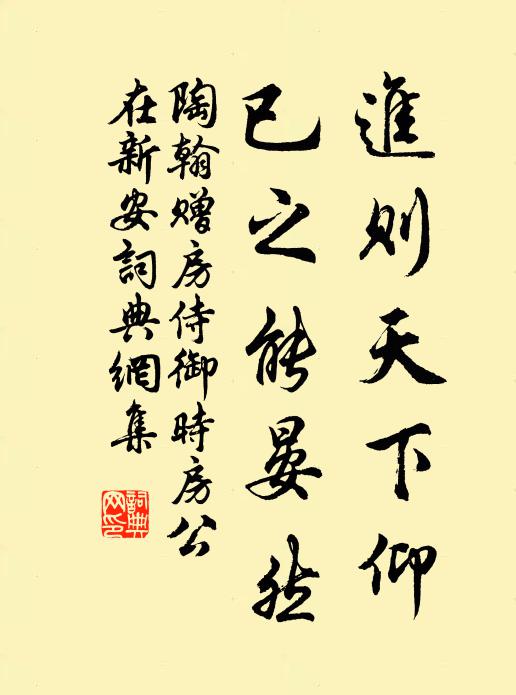 進則天下仰
已之能晏然
陶翰贈房侍御時房公
在新安詞典網集
詞典
网印